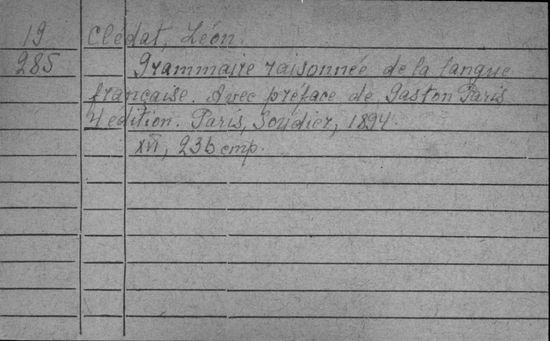 19 Clédat, Léon.
285 Grammaire raisonnée de la langue
française. Avec préface de Gaston Paris
4 édition. Paris, Soudier, 1894.
XVI, 236 cmp.